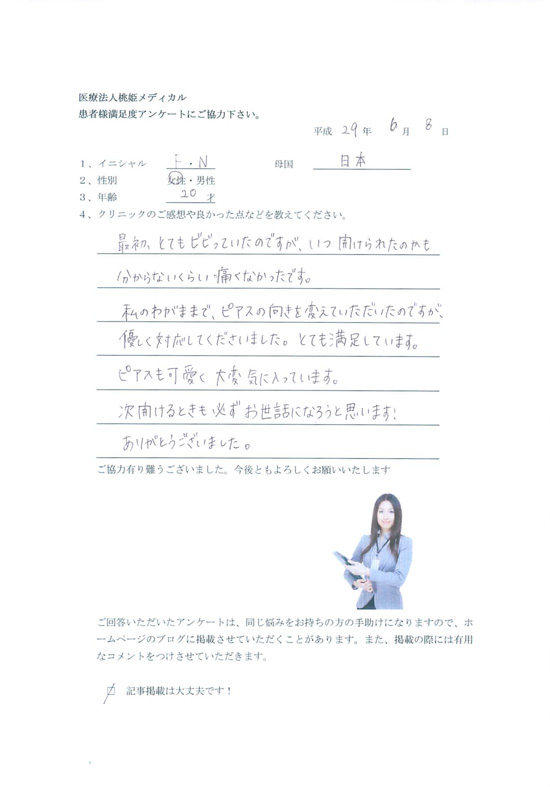 医療法人桃姫メディカル
患者様満足度アンケートにご協力下さい。
平成 29 年 6 月 8 日
1、イニシャル F・N 母国 日本
2、性別 女性・男性
3、年齢 20 才
4、クリニックのご感想や良かった点などを教えてください。
最初、とてもビビっていたのですが、いつ開けられたのかも
分からないくらい痛くなかったです。
私のわがままで、ピアスの向きを変えていただいたのですが、
優しく対応してくださいました。とても満足しています。
ピアスも可愛く大変気に入っています。
次開けるときも必ずお世話になろうと思います!
ありがとうございました。
ご協力有り難うございました。今後ともよろしくお願いいたします
ご回答いただいたアンケートは、同じ悩みをお持ちの方の手助けになりますので、ホ
ームページのブログに掲載させていただくことがあります。また、掲載の際には有用
なコメントをつけさせていただきます。
□ 記事掲載は大丈夫です!